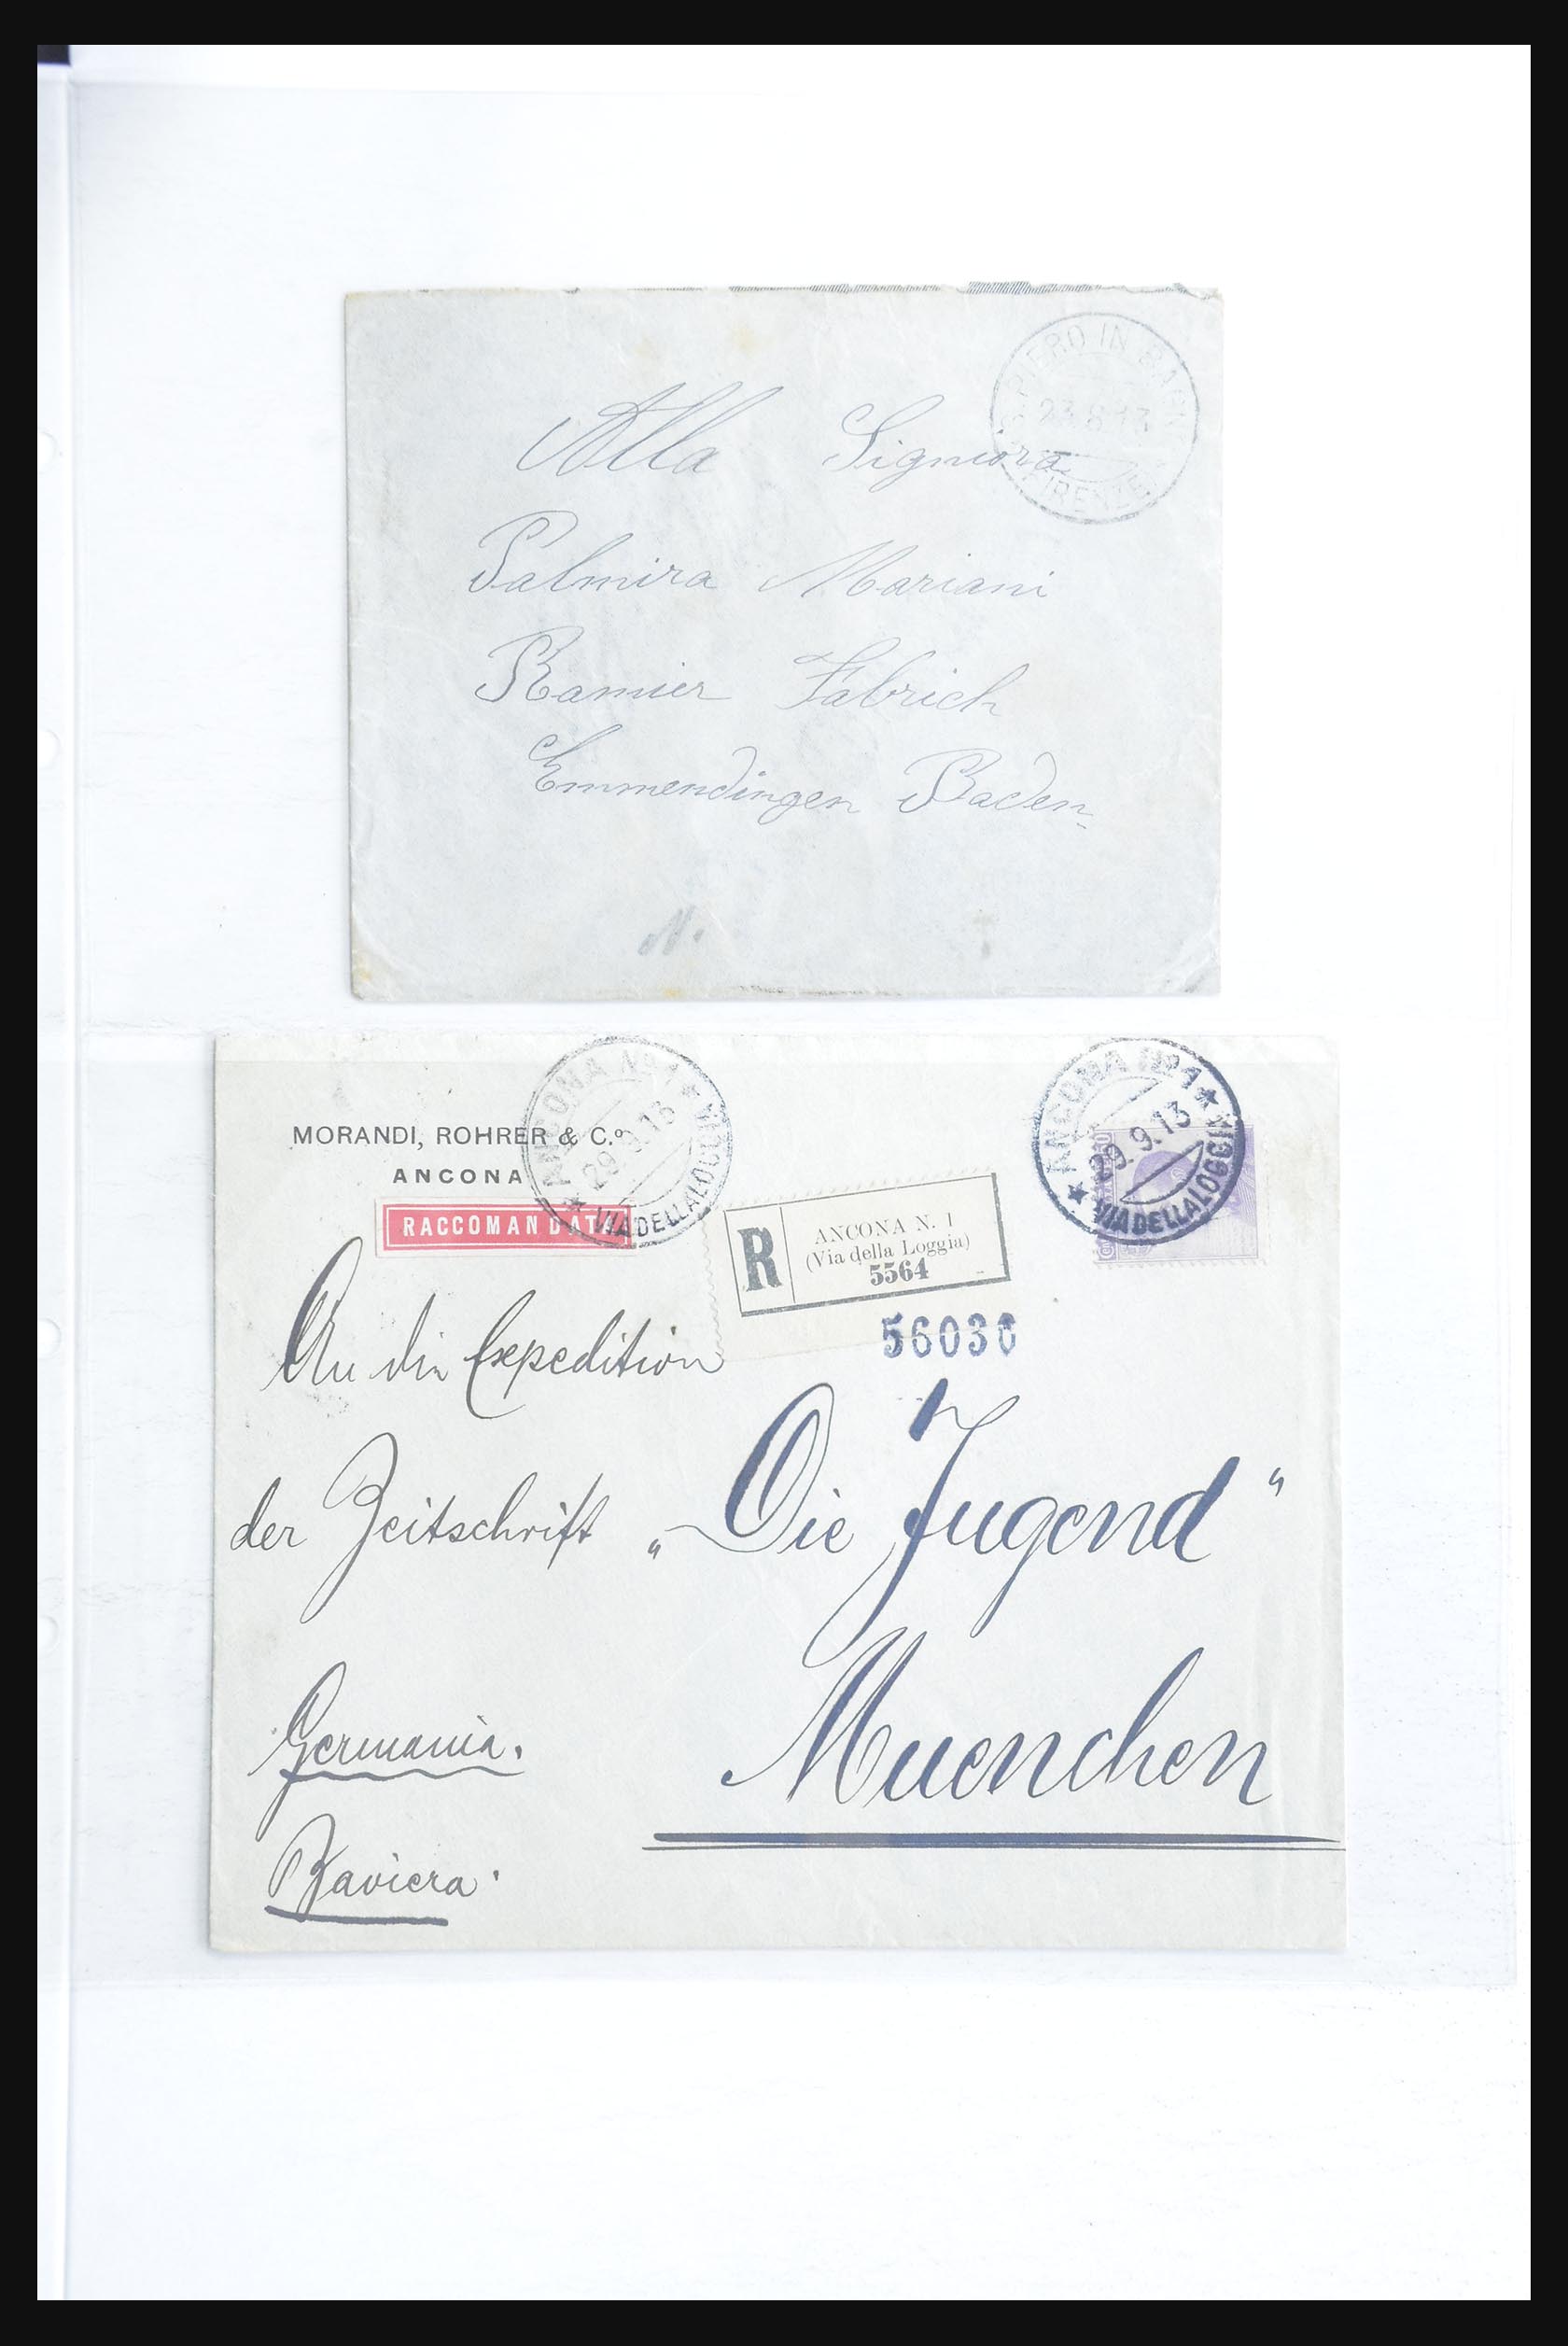 PIERO IN BAG
23.8.13
FIRENZE
Alla Signiora
Palmira Mariani
Ramier Fabrich
Emmendingen Baden
N.
MORANDI, ROHRER & C.º
ANCONA
RACCOMANDATA
ANCONA Nº 1
29.9.13
VIA DELLA LOGGIA
R
ANCONA N. 1
(Via della Loggia)
5564
ANCONA Nº 1
29.9.13
VIA DELLA LOGGIA
56036
An die Expedition
der Zeitschrift „Die Jugend“
Muenchen
Germania.
Baviera.